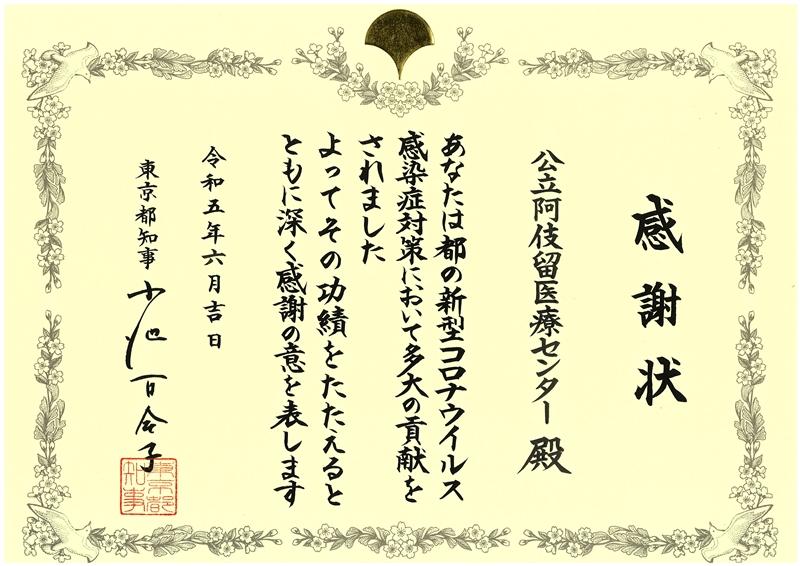 感謝状
公立阿伎留医療センター 殿
あなたは都の新型コロナウイルス
感染症対策において多大の貢献を
されました
よってその功績をたたえると
ともに深く感謝の意を表します
令和五年六月吉日
東京都知事 小池百合子
東京都
知事